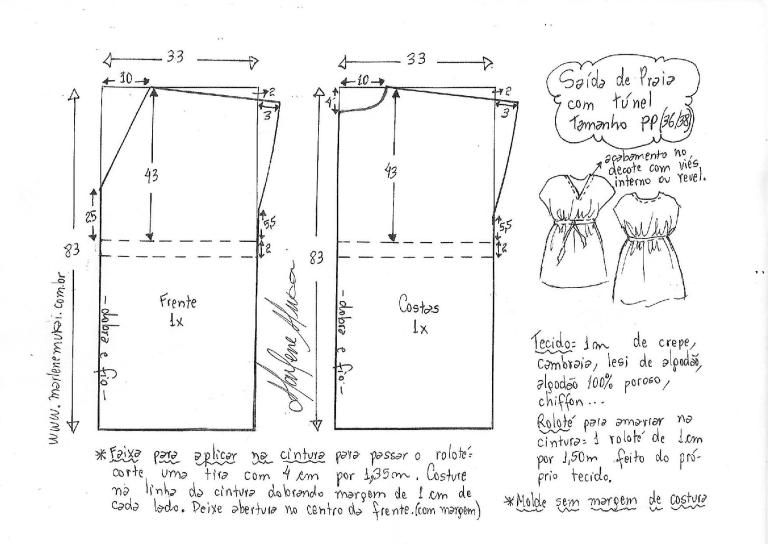 33
10
2
3
43
25
5,5
2
83
Frente
1x
- dobra e fio -
www.marlenemukai.com.br
Marlene Mukai
33
10
4
2
3
43
5,5
2
83
Costas
1x
- dobra e fio -
Saída de Praia
com túnel
Tamanho PP (36/38)
acabamento no
decote com viés
interno ou revel.
Tecido: 1m de crepe,
cambraia, lesi de algodão,
algodão 100% poroso,
chiffon...
Roloté para amarrar na
cintura: 1 roloté de 1cm
por 1,50m feito do pró-
prio tecido.
* Molde sem margem de costura
* Faixa para aplicar na cintura para passar o roloté:
corte uma tira com 4 cm por 1,35m. Costure
na linha da cintura dobrando margem de 1 cm de
cada lado. Deixe abertura no centro da frente. (com margem)